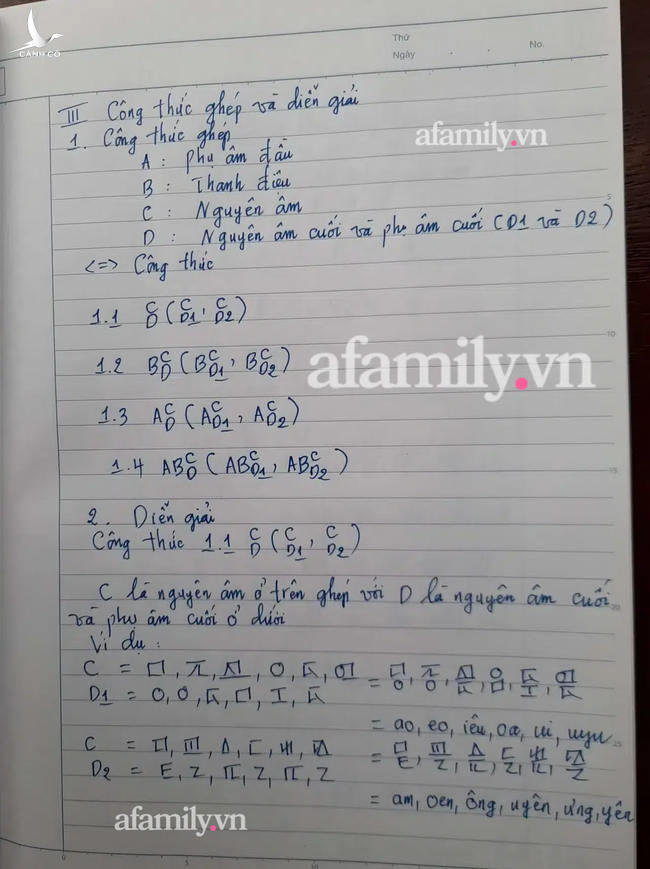 CÁNH CÒ
Thứ
Ngày . . No.
III Công thức ghép và diễn giải
1. Công thức ghép
afamily.vn
A : Phụ âm đầu
B : Thanh điệu
C : Nguyên âm
D : Nguyên âm cuối và phụ âm cuối (D1 và D2)
<=> Công thức
1.1 C D (C D1, C D2)
1.2 B C D (B C D1, B C D2)
afamily.vn
1.3 A C D (A C D1, A C D2)
1.4 AB C D (AB C D1, AB C D2)
2. Diễn giải
Công thức 1.1 C D (C D1, C D2)
C là nguyên âm ở trên ghép với D là nguyên âm cuối
và phụ âm cuối ở dưới
Ví dụ :
C =
D1 =
= ao, eo, iêu, oa, ui, uyu
C =
D2 =
= am, oen, ông, uyên, ưng, yên
afamily.vn
5
10
15
20
25
0
10